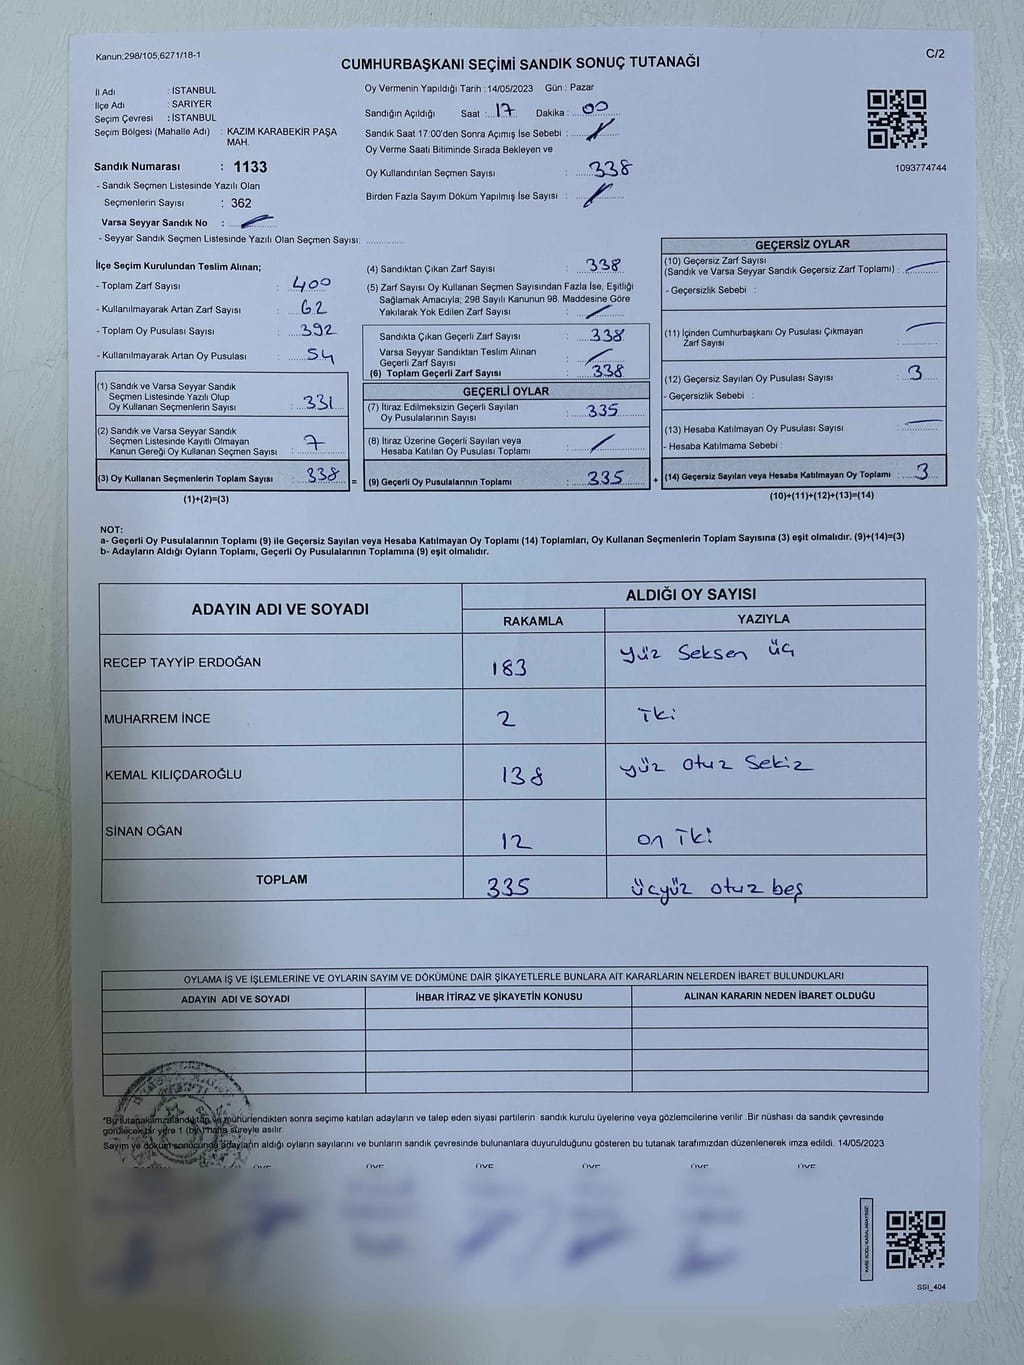 Kanun;298/105;6271/18-1
C/2
CUMHURBAŞKANI SEÇİMİ SANDIK SONUÇ TUTANAĞI
İl Adı : İSTANBUL
İlçe Adı : SARIYER
Seçim Çevresi : İSTANBUL
Seçim Bölgesi (Mahalle Adı) : KAZIM KARABEKİR PAŞA
MAH.
Sandık Numarası : 1133
- Sandık Seçmen Listesinde Yazılı Olan
Seçmenlerin Sayısı : 362
Varsa Seyyar Sandık No :
- Seyyar Sandık Seçmen Listesinde Yazılı Olan Seçmen Sayısı:
Oy Vermenin Yapıldığı Tarih :14/05/2023 Gün : Pazar
Sandığın Açıldığı Saat : 17 Dakika : 00
Sandık Saat 17:00'den Sonra Açımış İse Sebebi :
Oy Verme Saati Bitiminde Sırada Bekleyen ve
Oy Kullandırılan Seçmen Sayısı : 338
Birden Fazla Sayım Döküm Yapılmış İse Sayısı :
1093774744
İlçe Seçim Kurulundan Teslim Alınan;
- Toplam Zarf Sayısı : 400
- Kullanılmayarak Artan Zarf Sayısı : 62
- Toplam Oy Pusulası Sayısı : 392
- Kullanılmayarak Artan Oy Pusulası : 54
(1) Sandık ve Varsa Seyyar Sandık
Seçmen Listesinde Yazılı Olup
Oy Kullanan Seçmenlerin Sayısı : 331
(2) Sandık ve Varsa Seyyar Sandık
Seçmen Listesinde Kayıtlı Olmayan
Kanun Gereği Oy Kullanan Seçmen Sayısı : 7
(3) Oy Kullanan Seçmenlerin Toplam Sayısı : 338 =
(1)+(2)=(3)
(4) Sandıktan Çıkan Zarf Sayısı : 338
(5) Zarf Sayısı Oy Kullanan Seçmen Sayısından Fazla İse, Eşitliği
Sağlamak Amacıyla; 298 Sayılı Kanunun 98. Maddesine Göre
Yakılarak Yok Edilen Zarf Sayısı :
Sandıkta Çıkan Geçerli Zarf Sayısı : 338
Varsa Seyyar Sandıktan Teslim Alınan
Geçerli Zarf Sayısı :
(6) Toplam Geçerli Zarf Sayısı : 338
GEÇERLİ OYLAR
(7) İtiraz Edilmeksizin Geçerli Sayılan
Oy Pusulalarının Sayısı : 335
(8) İtiraz Üzerine Geçerli Sayılan veya
Hesaba Katılan Oy Pusulası Toplamı :
(9) Geçerli Oy Pusulalarının Toplamı : 335 +
GEÇERSİZ OYLAR
(10) Geçersiz Zarf Sayısı
(Sandık ve Varsa Seyyar Sandık Geçersiz Zarf Toplamı) :
- Geçersizlik Sebebi :
(11) İçinden Cumhurbaşkanı Oy Pusulası Çıkmayan
Zarf Sayısı :
(12) Geçersiz Sayılan Oy Pusulası Sayısı : 3
- Geçersizlik Sebebi :
(13) Hesaba Katılmayan Oy Pusulası Sayısı :
- Hesaba Katılmama Sebebi :
(14) Geçersiz Sayılan veya Hesaba Katılmayan Oy Toplamı : 3
(10)+(11)+(12)+(13)=(14)
NOT:
a- Geçerli Oy Pusulalarının Toplamı (9) ile Geçersiz Sayılan veya Hesaba Katılmayan Oy Toplamı (14) Toplamları, Oy Kullanan Seçmenlerin Toplam Sayısına (3) eşit olmalıdır. (9)+(14)=(3)
b- Adayların Aldığı Oyların Toplamı, Geçerli Oy Pusulalarının Toplamına (9) eşit olmalıdır.
ADAYIN ADI VE SOYADI ALDIĞI OY SAYISI
RAKAMLA YAZIYLA
RECEP TAYYİP ERDOĞAN 183 yüz Seksen üç
MUHARREM İNCE 2 iki
KEMAL KILIÇDAROĞLU 138 yüz otuz Sekiz
SİNAN OĞAN 12 on iki
TOPLAM 335 üçyüz otuz beş
OYLAMA İŞ VE İŞLEMLERİNE VE OYLARIN SAYIM VE DÖKÜMÜNE DAİR ŞİKAYETLERLE BUNLARA AİT KARARLARIN NELERDEN İBARET BULUNDUKLARI
ADAYIN ADI VE SOYADI İHBAR İTİRAZ VE ŞİKAYETİN KONUSU ALINAN KARARIN NEDEN İBARET OLDUĞU
*Bu tutanak imzalandıktan ve mühürlendikten sonra seçime katılan adayların ve talep eden siyasi partilerin sandık kurulu üyelerine veya gözlemcilerine verilir .Bir nüshası da sandık çevresinde
görülecek bir yere 1 (bir) hafta süreyle asılır.
Sayım ve döküm sonucunda adayların aldığı oyların sayılarını ve bunların sandık çevresinde bulunanlara duyurulduğunu gösteren bu tutanak tarafımızdan düzenlenerek imza edildi. 14/05/2023
ÜYE ÜYE ÜYE ÜYE ÜYE ÜYE
KARE KODU KARALAMAYINIZ!
SSI_404